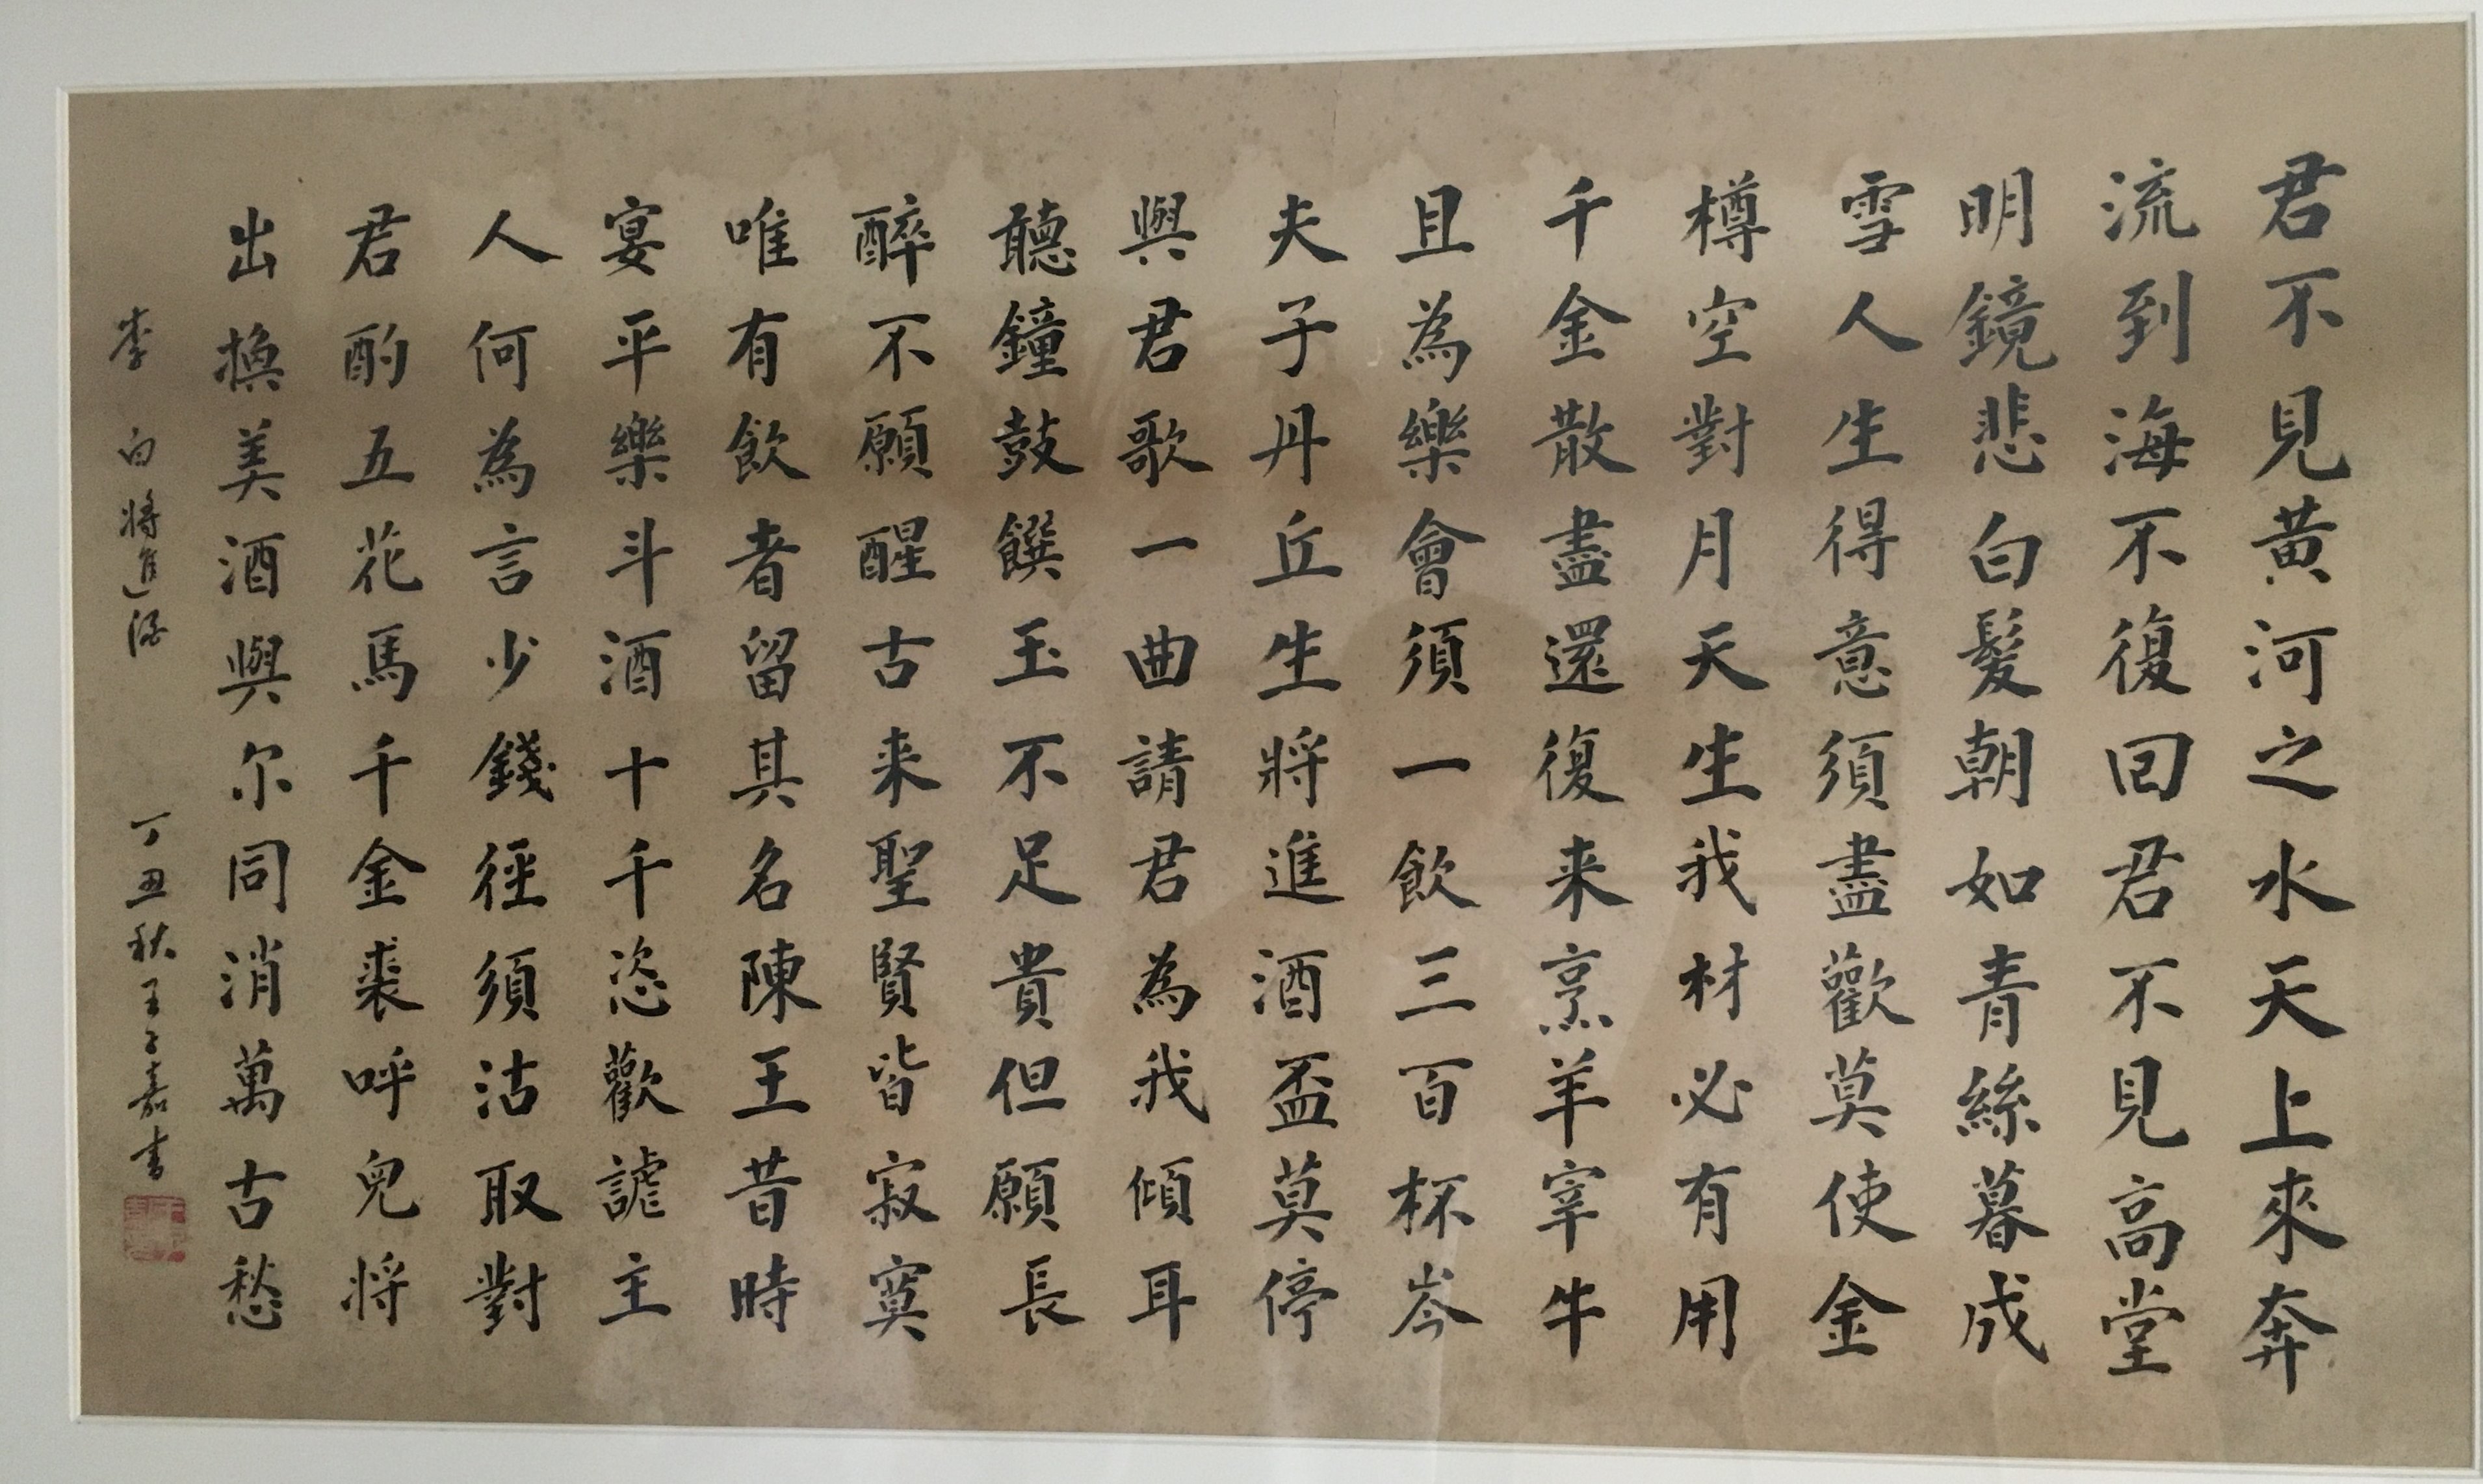 君不見黄河之水天上來奔
流到海不復回君不見高堂
明鏡悲白髮朝如青絲暮成
雪人生得意須盡歡莫使金
樽空對月天生我材必有用
千金散盡還復来烹羊宰牛
且為樂會須一飲三百杯岑
夫子丹丘生將進酒盃莫停
與君歌一曲請君為我傾耳
聽鐘鼓饌玉不足貴但願長
醉不願醒古来聖賢皆寂寞
唯有飲者留其名陳王昔時
宴平樂斗酒十千恣歡謔主
人何為言少錢徑須沽取對
君酌五花馬千金裘呼兒将
出換美酒與尔同消萬古愁
李白將進酒 丁丑秋王子嘉書